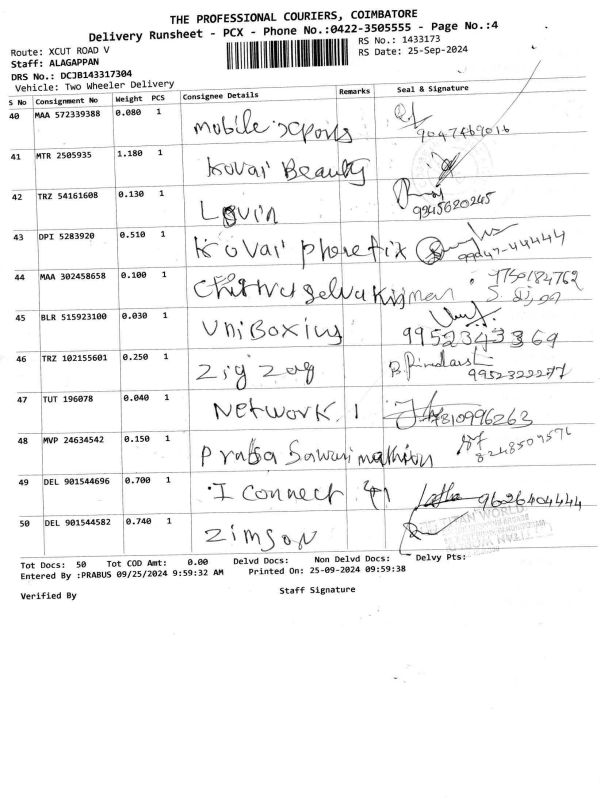 THE PROFESSIONAL COURIERS, COIMBATORE
Delivery Runsheet - PCX - Phone No.:0422-3505555 - Page No.:4
Route: XCUT ROAD V RS No.: 1433173
Staff: ALAGAPPAN RS Date: 25-Sep-2024
DRS No.: DCJB143317304
Vehicle: Two Wheeler Delivery
S No Consignment No Weight PCS Consignee Details Remarks Seal & Signature
40 MAA 572339388 0.080 1 mobile xports 9047469016
41 MTR 2505935 1.180 1 Kovai Beauty
42 TRZ 54161608 0.130 1 9245620245
43 DPI 5283920 0.510 1 Kovai phone fix 99947-44444
44 MAA 302458658 0.100 1 9750184762
45 BLR 515923100 0.030 1 UniBoxing 9952343369
46 TRZ 102155601 0.250 1 zig zag 9952322277
47 TUT 196078 0.040 1 Network 1 7810996263
48 MVP 24634542 0.150 1 8248507576
49 DEL 901544696 0.700 1 I connect Latha 9626404444
50 DEL 901544582 0.740 1 zimson
TITAN WORLD
Tot Docs: 50 Tot COD Amt: 0.00 Delvd Docs: Non Delvd Docs: Delvy Pts:
Entered By :PRABUS 09/25/2024 9:59:32 AM Printed On: 25-09-2024 09:59:38
Verified By Staff Signature